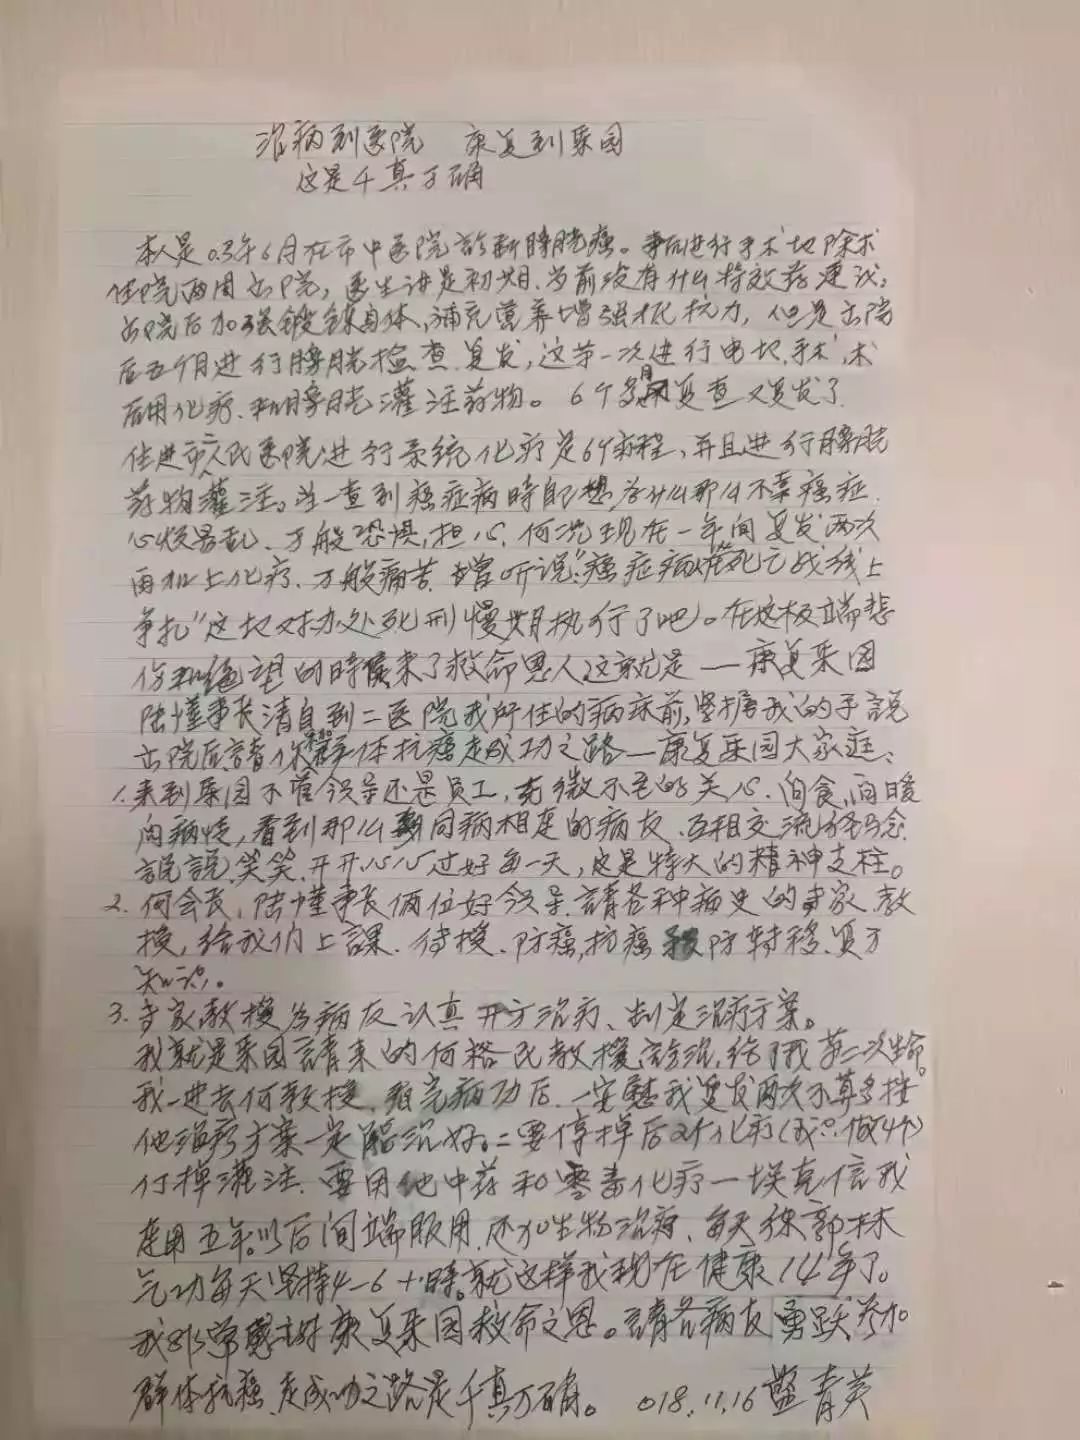 治病到医院 康复到乐园
这是千真万确
本人是03年6月在市中医院診断膀胱癌。事后进行手术切除术
住院两周出院，医生讲是初期.当前没有什么特效药建议，
出院后加强锻鍊身体、補充营养增强抵抗力，但是出院
后五个月进行膀胱检查.复发，这第一次进行电切.手术，术
后用化疗.和膀胱灌注药物。6个多月复查又复发了
住进市二人民医院进行系统化疗是6个疗程，并且进行膀胱
药物灌注。当一查到癌症病時自己想为什么那么不幸癌症.
心烦易乱、万般恐惧，担心.何况现在一年间复发两次
再加上化疗.万般痛苦.曾听说“癌症病人在死亡战线上
争扎”这切对办处死刑慢期执行了吧。在这极端悲
伤和绝望的時候来了救命恩人这就是——康复乐园
陆懂事长清自到二医院我所住的病床前，坚握我的手説
出院后請你和群体抗癌走成功之路—康复乐园大家庭：
1.来到乐园不管领导还是员工，无微不至的关心.问食，问暖
问病情，看到那么多同病相连的病友.互相交流.
説説、笑笑.开开心心过好每一天，这是特大的精神支柱。
2.何会长，陆懂事长俩位好领导.請各种病史的专家.教
授，给我们上課.传授.防癌，抗癌 防转移.复方
知识。
3.专家教授为病友认真开方治疗、制定治疗方案。
我就是乐园請来的何裕民教授診治，给了我第二次生命。
我一进去何教授.看完病功后.一安慰我复发两次不算多按
他治疗方案一定能治好。二要停掉后2个化疗（我只做4个）
停掉灌注.要用他中药和零毒化疗一埃克信我
连用五年。以后间端服用.还加生物治疗、每天练郭林
气功每天坚持4—6小時。就这样我现在健康14年了。
我非常感謝康复乐园救命之恩。請各病友勇跃参加
群体抗癌.走成功之路是千真万确。 018.11.16 青英